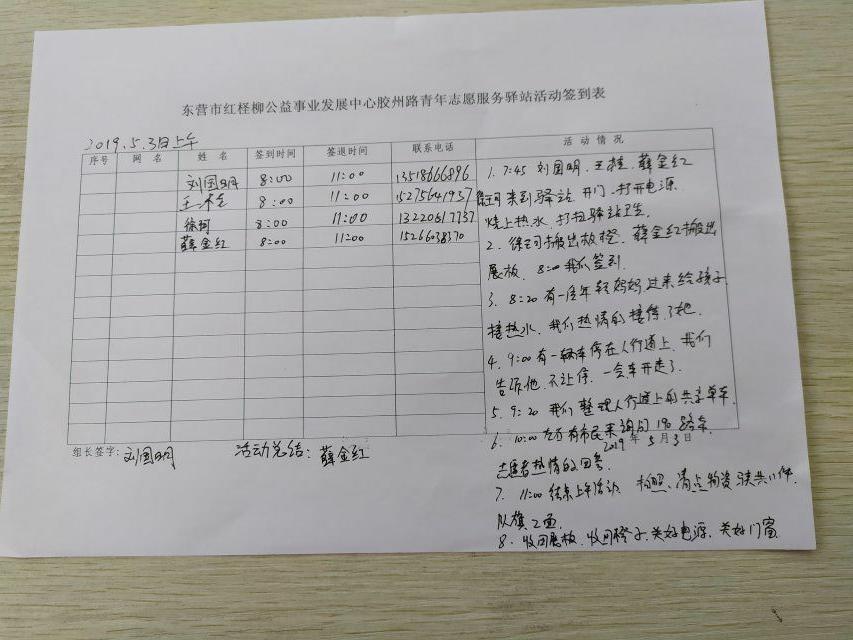 东营市红柽柳公益事业发展中心胶州路青年志愿服务驿站活动签到表
2019.5.3日上午
序号 网名 姓名 签到时间 签退时间 联系电话 活动情况
刘国明 8:00 11:00 13518666896
王桂 8:00 11:00 15275641957
徐珂 8:00 11:00 13220617737
薛金红 8:00 11:00 15266038370
1. 7:45 刘国明、王桂、薛金红
徐珂来到驿站 开门、打开电源
烧上热水、打扫驿站卫生.
2. 徐珂搬出板凳、薛金红搬出
展板. 8:00我们签到.
3. 8:20有一位年轻妈妈过来给孩子
接热水、我们热情的接待了她.
4. 9:00有一辆车停在人行道上、我们
告诉他、不让停、一会车开走了.
5. 9:20 我们整理人行道上的共享单车.
6. 10:00左右有市民来询问 190路车.
2019年5月3日
志愿者热情的回答.
7. 11:00结束上午活动. 拍照、清点物资 共11件.
队旗2面.
8. 收回展板、收回凳子、关好电源、关好门窗
组长签字:刘国明 活动总结:薛金红